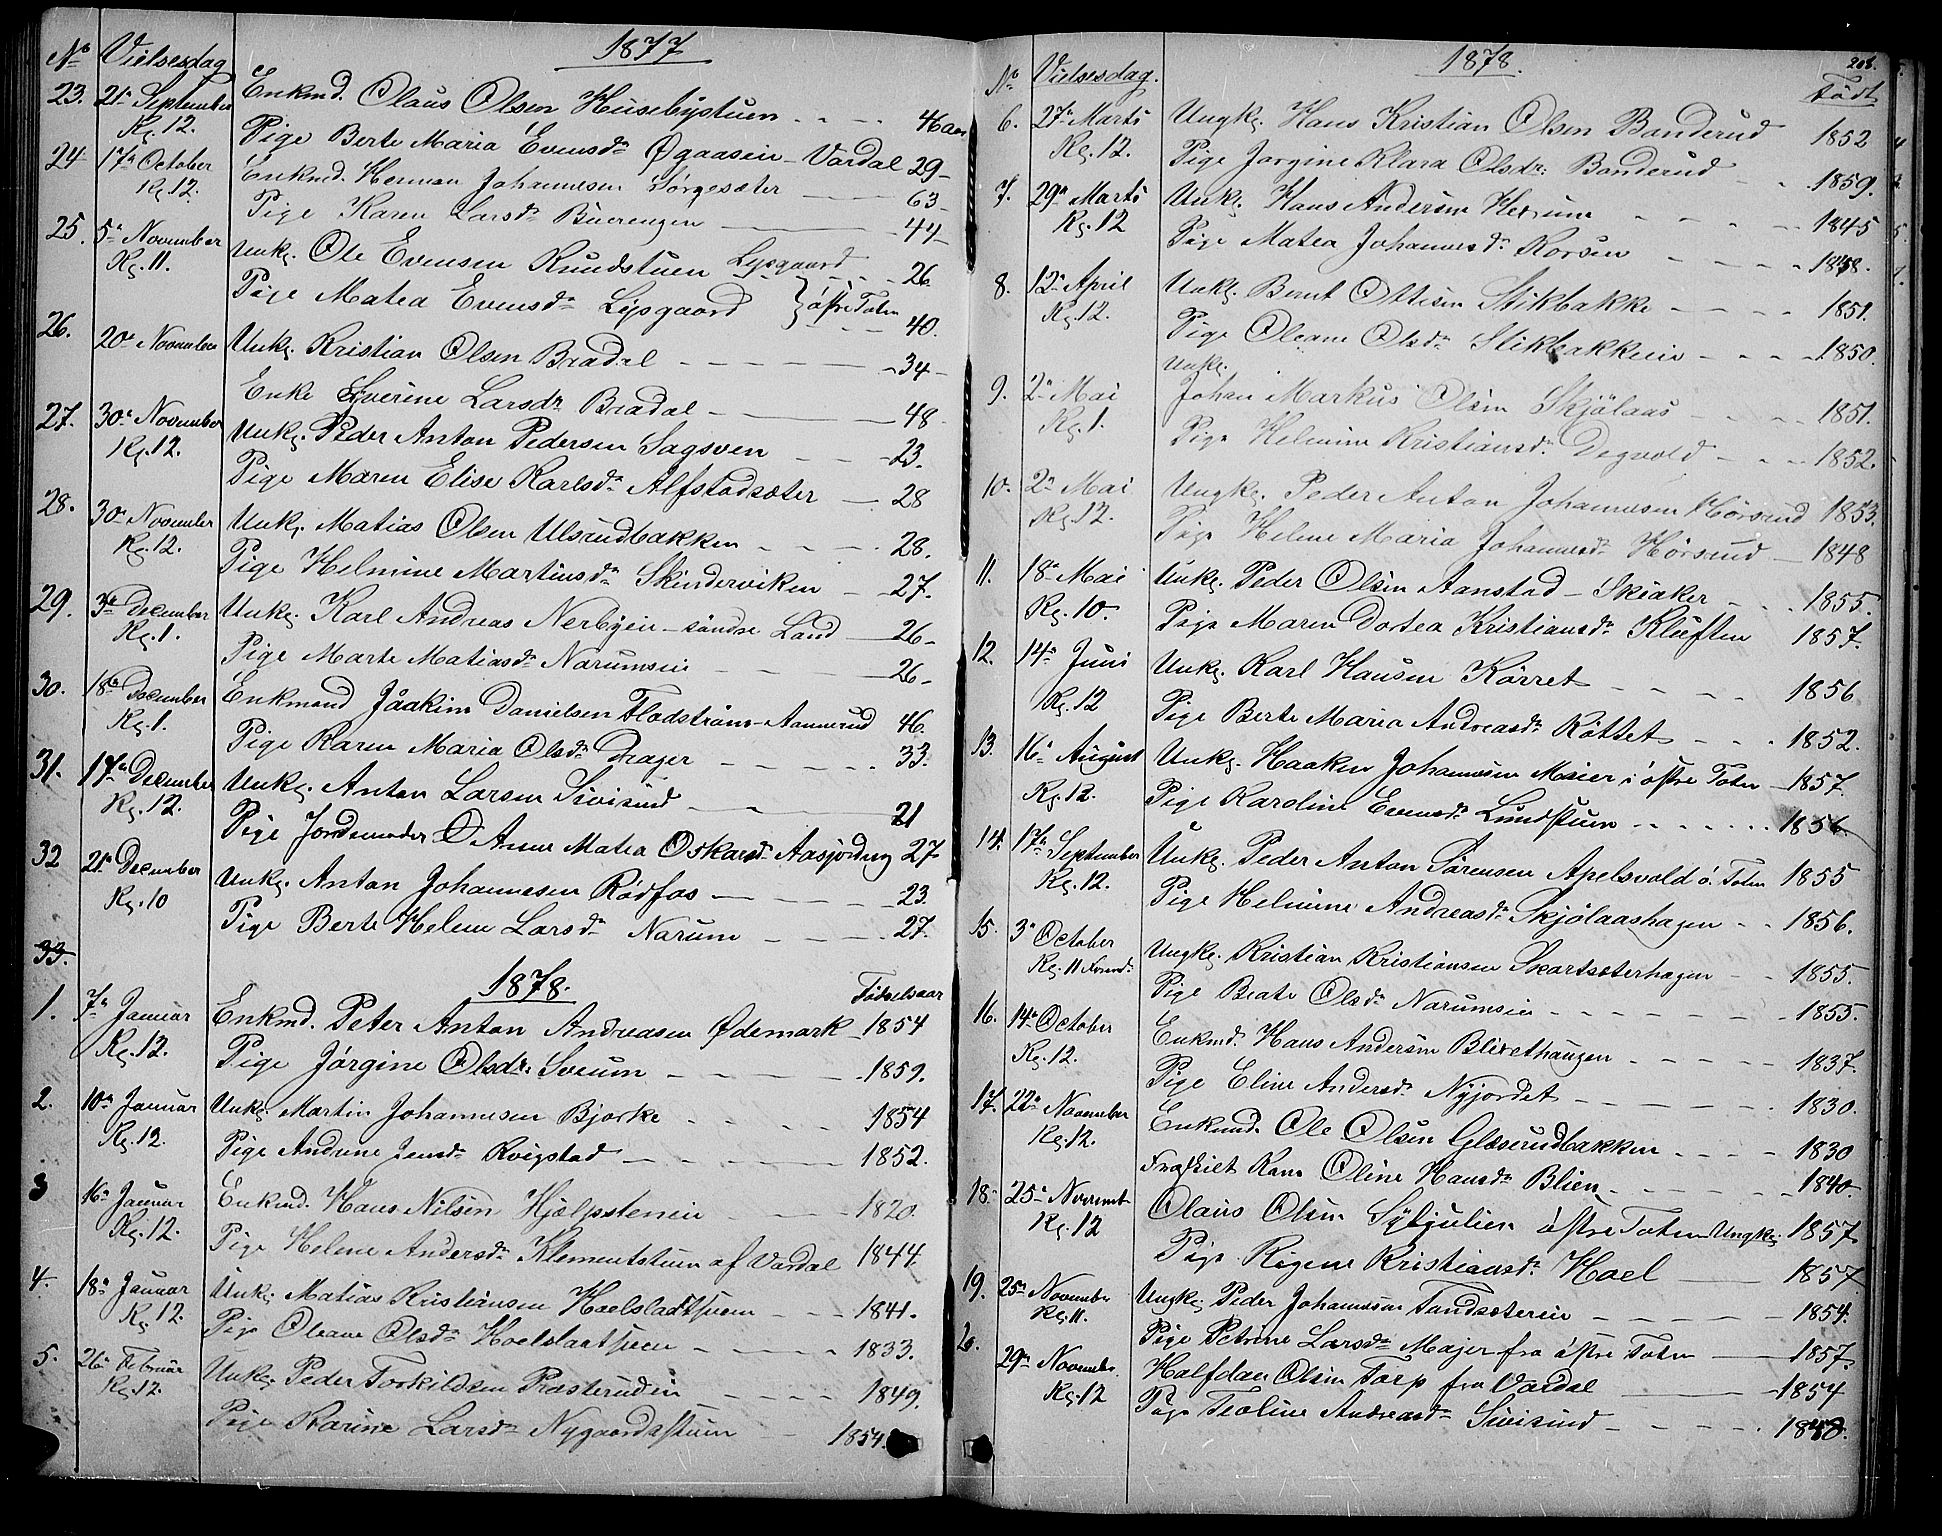 1877
No Vielsesdag
23. 21de September Enkmd. Olaus Olsen Husebystuen - - - 46 aar
Kg. 12. Pige Berte Maria Evensdr Øgaaseie - Vardal 29 -
24 17de October Enkmd. Herman Johannesen Sørgesæter - 63 -
Kg. 12. Pige Karen Larsdr Buerengen - 44 -
25. 5te November Unkg. Ole Evensen Rundstuen Lysgaard - - - 26
Kg. 11. Pige Matea Evensdr Lysgaard } østre Toten - - - 40.
26. 20de November Unkg. Kristian Olsen Bradal - - - 34 -
Enke Syverine Larsdr Bradal - 48
27. 30te November Unkg. Peder Anton Pedersen Sagsveen - - - 23.
Kg. 12. Pige Maren Elise Karlsdr Alfstadsæter - 28
28. 30te November Unkg. Matias Olsen Ulsrudbakken - - - 28.
Kg. 12. Pige Helmine Martinsdr Skinderviken - 27.
29. 3de December Unkg. Karl Andreas Nerbyeie - søndre Land - 26 -
Kg. 1. Pige Marte Matiasdr Narumseie - - - 26 -
30. 18de December Enkmand Jåakim Danielsen Flodstrøm - Aannerud 46.
Kg. 1. Pige Karen Maria Olsdr Drager - - - 33.
31. 17de December Unkg. Anton Larsen Sivisind - 21
Kg. 12. Pige Jordemoder Anne Matea Oskarsd. Aasjording 27
32 21de December Unkg. Anton Johannesen Rødfos - - - 23.
Kg. 10 Pige Berte Helene Larsdr Narum - - - 27.
33.
1878. Fødselsaar
1. 7de Januar Enkmd. Peter Anton Andreasen Ødemark - 1854
Kg. 12. Pige Jørgine Olsdr. Sveum - - - 1859.
2. 10de Januar Unkg. Martin Johannesen Bjørke - - - 1854
Kg. 12. Pige Andrine Jensdr Kvigstad - - - 1852.
3 16de Januar Enkmd. Hans Nilsen Hjelpsteneie - - - 1820.
Kg. 12. Pige Helene Andersdr Klementstuen af Vardal 1844.
4. 18de Januar Unkg. Matias Kristiansen Hoelslattsveen - 1841.
Kg 12. Pige Oleane Olsdr Hoelslaatsveen - - - 1833.
5. 26de Februar Unkg. Peder Torkildsen Præsterudeie - - - 1849.
Kg. 12. Pige Karine Larsdr Nygaardsstuen - 1854.
1878. 208.
No Vielsesdag. Født
6. 27de Marts Ungkg. Hans Kristian Olsen Banderud 1852
Kg. 12. Pige Jørgine Klara Olsdr. Banderud - - 1859.
7. 29de Marts Unkg. Hans Andersen Hexum - - - 1845
Kg. 12 Pige Matea Johannesdr Korsen - - - 1848.
8. 12te April Unkg. Bernt Ottesen Stikbakke - - - 1851.
Kg. 12. Pige Oleane Olsdr Stikbakkeie - - - 1850.
Unkg.
9. 2de Mai Johan Markus Olsen Skjølaas - - - 1851.
Kg. 1. Pige Helmine Kristiansdr. Degvold - - - 1852.
10. 2de Mai Ungkg. Peder Anton Johannesen Hørsrud 1853.
Kg. 12. Pige Helene Maria Johannesdr Hørsrud - 1848
11. 18de Mai Unkg. Peder Olsen Aanstad - Skiaker - - 1855.
Kg. 10. Pige Maren Dortea Kristiansdr Kluften 1857.
12. 14de Juni Unkg. Karl Hansen Kørret - - - 1856
Kg. 12 Pige Berte Maria Andreasdr Røttet - - - 1852.
13. 16de August Unkg. Haaken Johannesen Majer i østre Toten - 1857.
Kg. 12. Pige Karoline Evensdr Lundstuen - - - 1856
14. 17de September Unkg. Peder Anton Sørensen Apelsvold ø. Toten 1855
Kg. 12. Pige Helmine Andreasdr Skjølaashagen - - 1856.
15. 3de October Ungkg. Kristian Kristiansen Skartsæterhagen - - 1855.
Kg. 11 Formd. Pige Beate Olsdr Narumseie - - - 1855.
16. 14de October Enkmd. Hans Andersen Blixethaugen - - - 1837.
Kg. 12. Pige Eline Andersdr Nyjordet - - - 1830.
17. 22de November Enkmd. Ole Olsen Glæserudbakken - - - 1830
Kg. 12. Fraskilt Kone Oline Hansdr Blien - - - 1840.
18. 25de Novemb Olaus Olsen Syljulien østre Toten Ungkg. 1857
Kg. 12 Pige Regine Kristiansdr Hoel - 1857
19. 25de November Ungkg. Peder Johannesen Tandsætereie - - - 1854.
Kg. 11. Pige Petrine Larsdr Majer fra østre Toten - 1857.
20. 29de Novembr. Halfdan Olsen Torp fra Vardal - 1854
Kg. 12 Pige Teoline Andreasdr Sivisind - - - 1850.